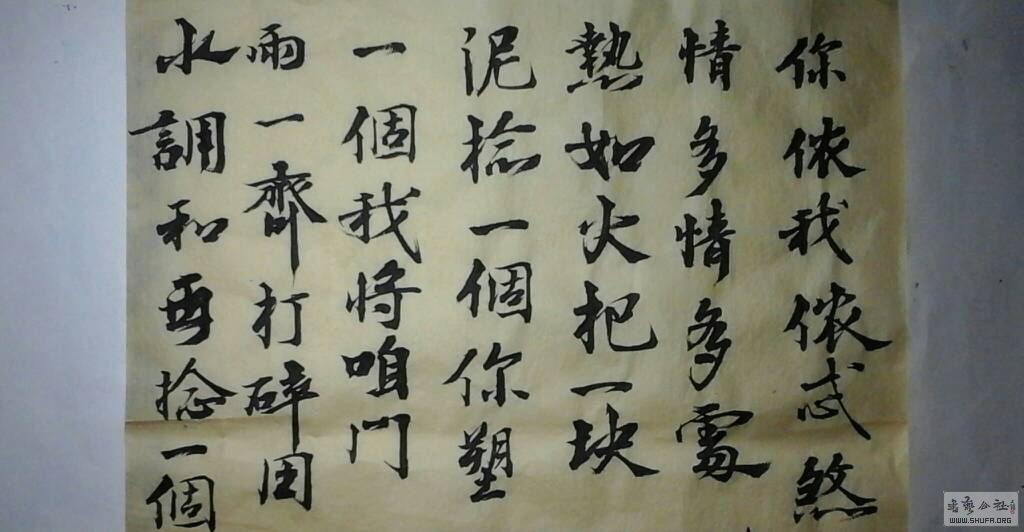 你侬我侬忒煞
情多情多處
熱如火把一块
泥捻一個你塑
一個我将咱门
兩一齊打碎用
水調和再捻一個
书艺公社
WWW.SHUFA.ORG